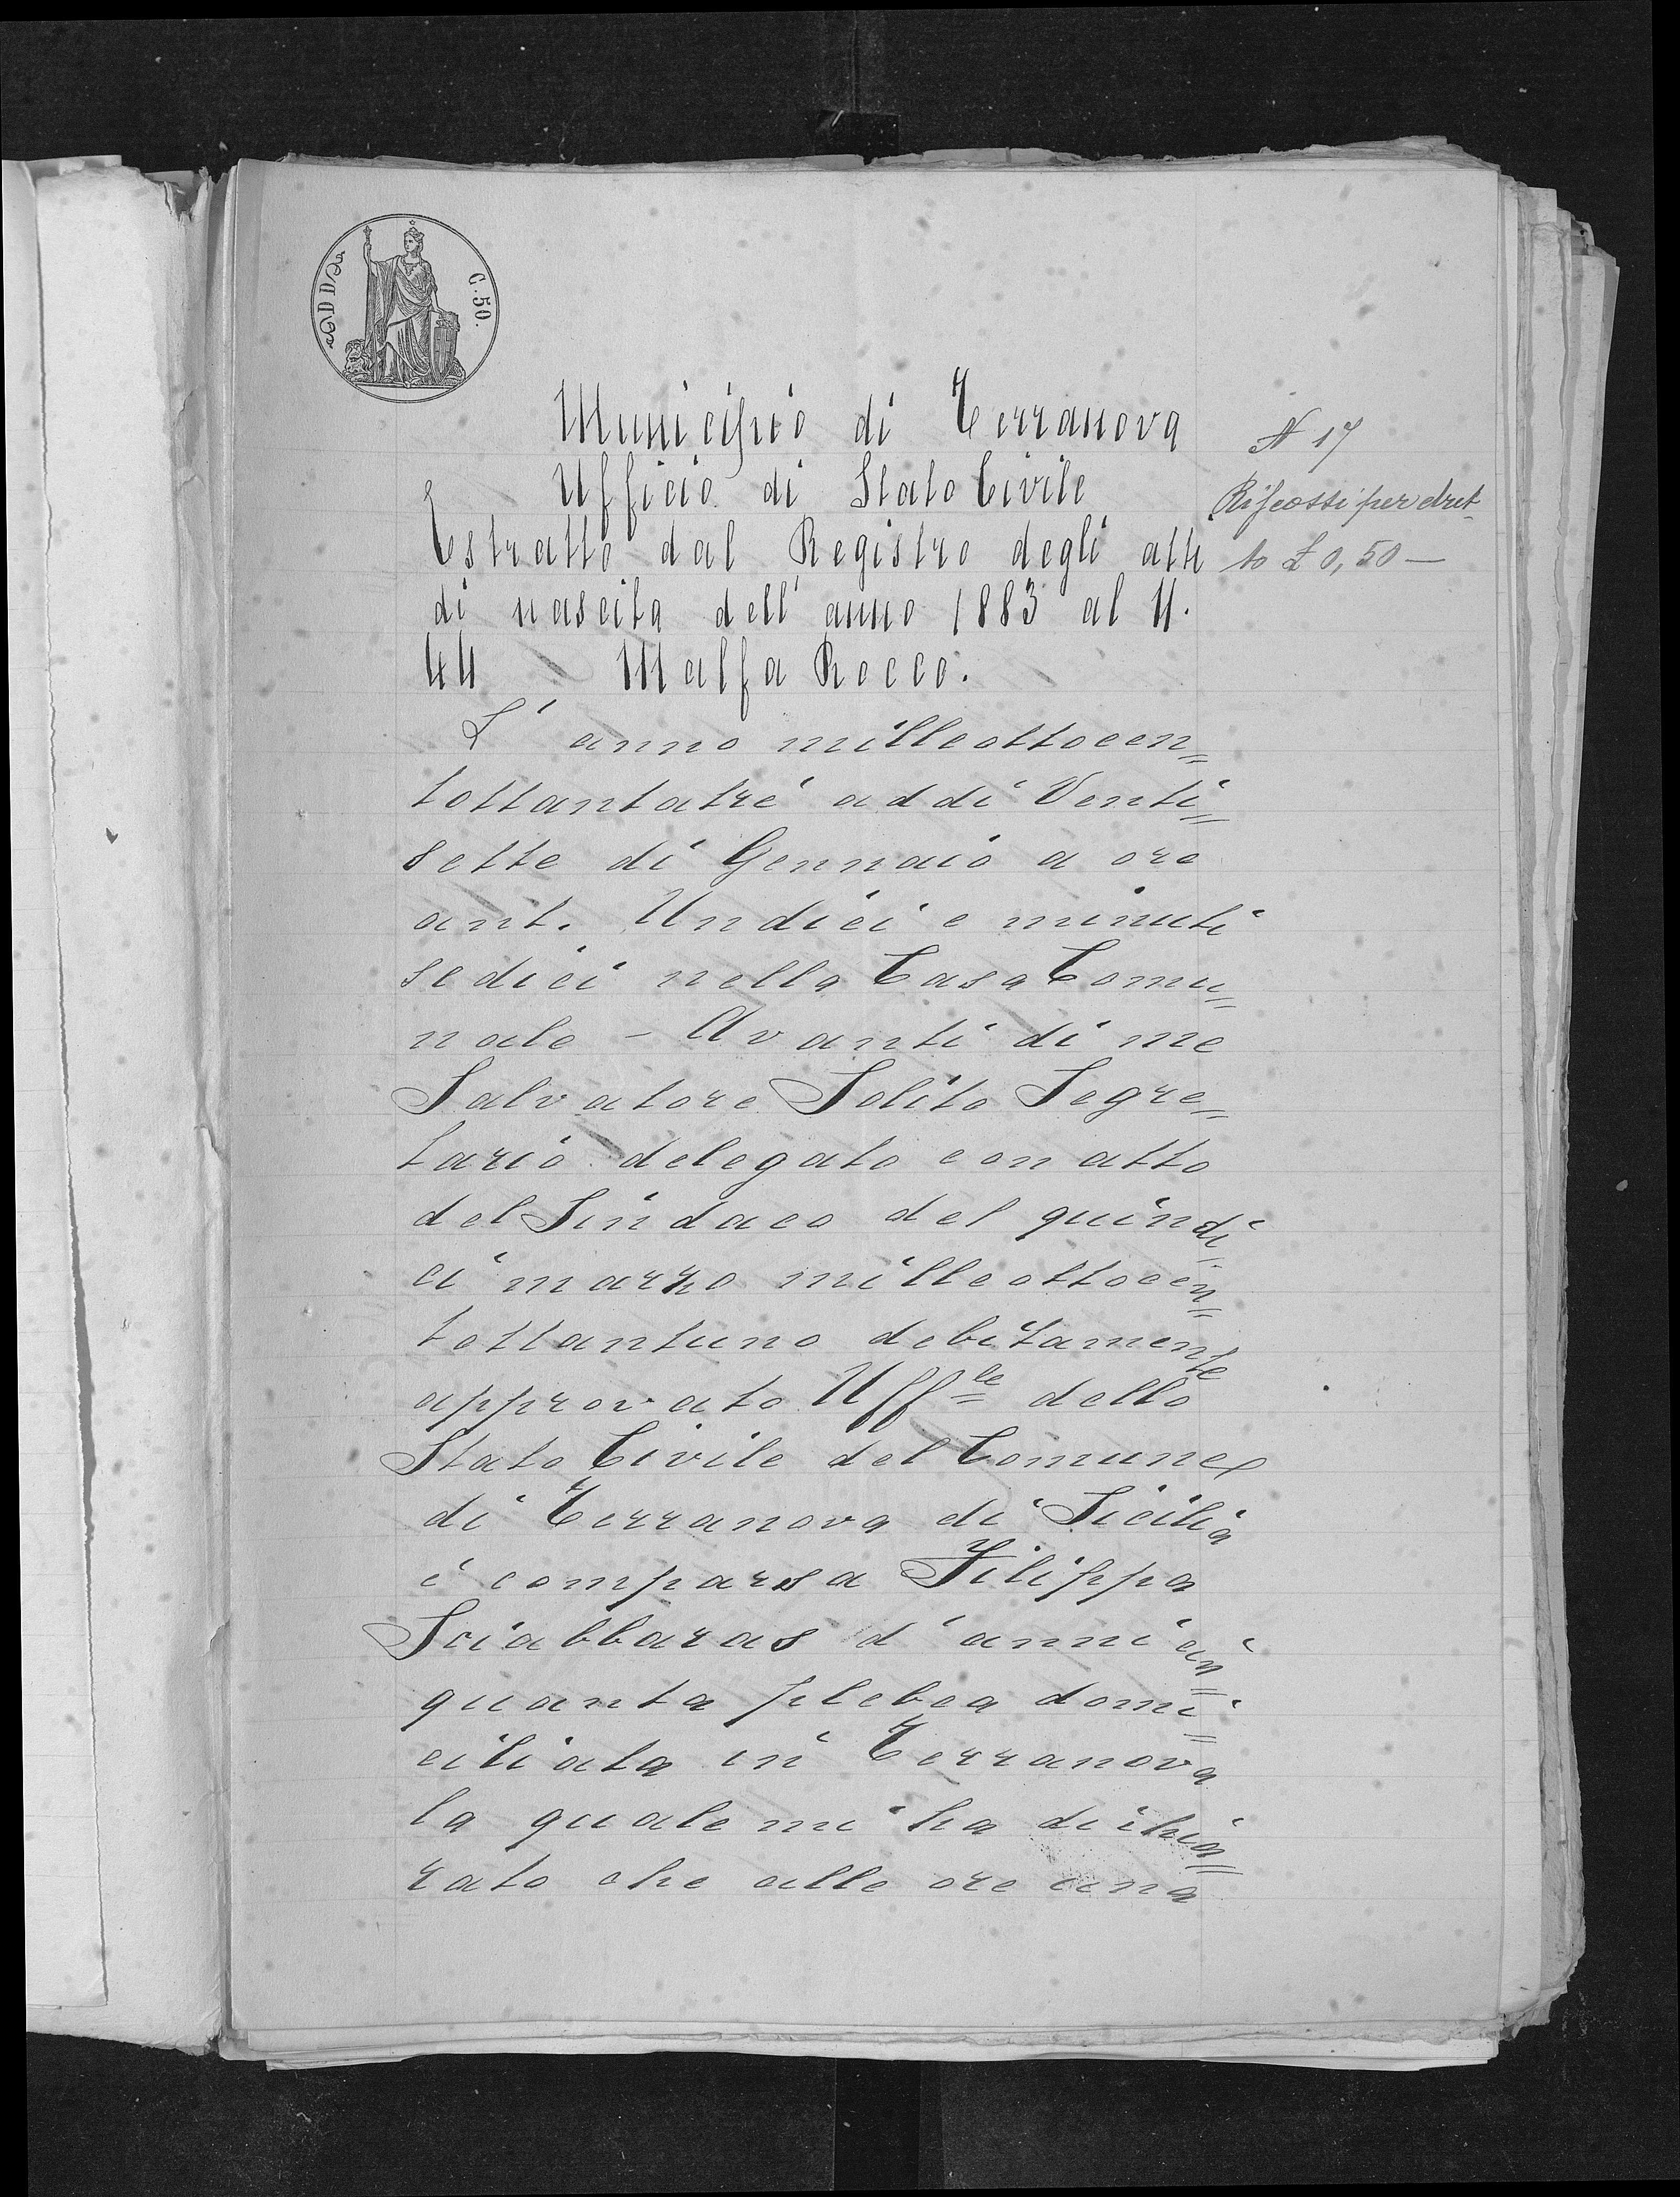 C. 50.
Municipio di Terranova
Ufficio di Stato Civile
Estratto dal Registro degli atti
di nascita dell'anno 1883 al N.
44 Malfa Rocco.
N 17
Riscossi per drit-
to £ 0,50 —
L'anno milleottocen=
tottantatrè addi Venti=
sette di Gennaio a ore
ant. Undici e minuti
sedici nella Casa Comu=
nale - Avanti di me
Salvatore Solito Segre=
tario delegato con atto
del Sindaco del quindi
ci marzo milleottocen=
tottantuno debitamente
approvato Uffle dello
Stato Civile del Comune
di Terranova di Sicilia
è comparsa Filippa
Sciabbaras d'anni cin=
quanta plebea domi=
ciliata in Terranova
la quale mi ha dichia=
rato che alle ore una